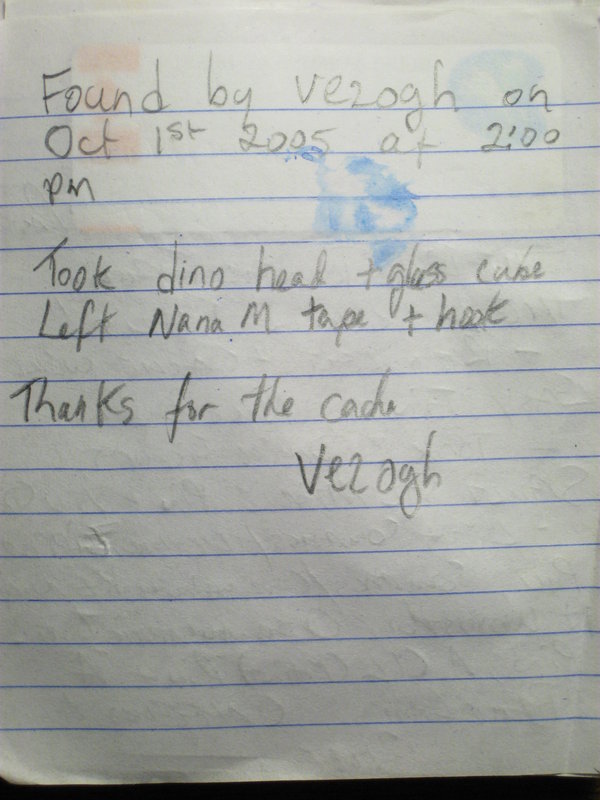 Found by vezogh on
Oct 1st 2005 at 2:00
pm
Took dino head + glass cube
Left Nana M tape + hook
Thanks for the cache
Vezogh